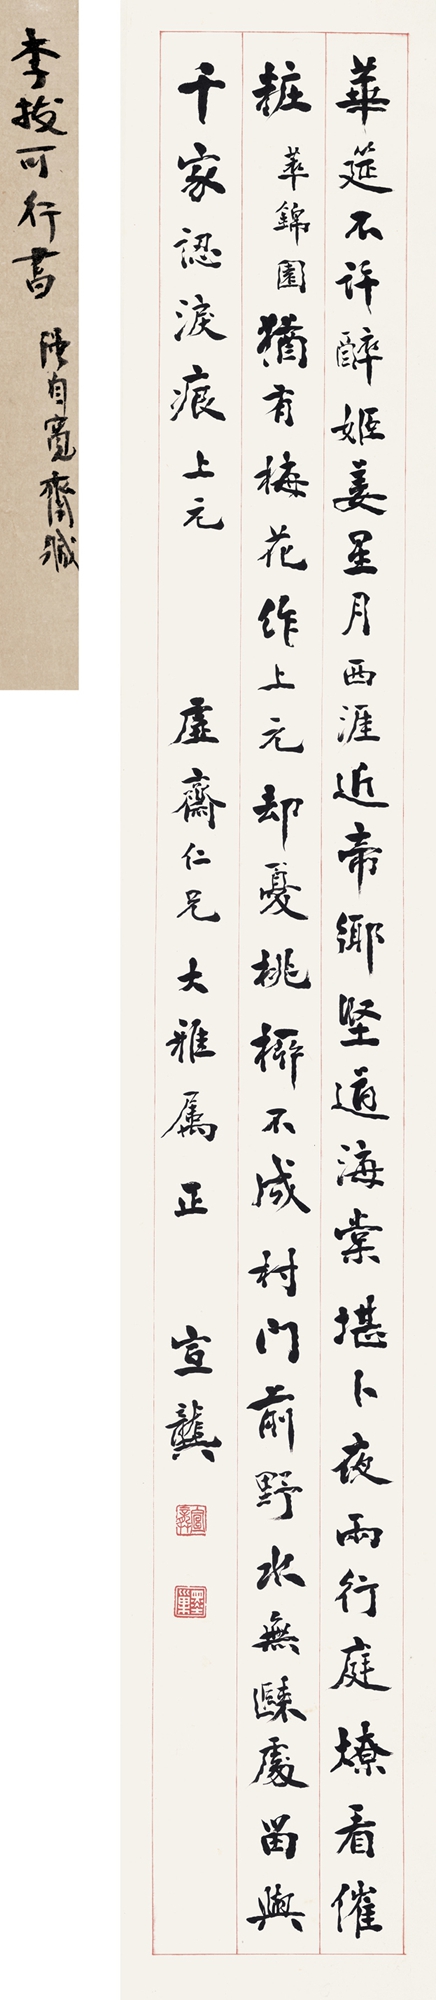 李拔可行書
自寬齋藏
華筵不許醉姬姜星月西涯近帝鄉堅道海棠堪卜夜兩行庭燎看催
粧 萃錦園 猶有梅花作上元却憂桃柳不成村門前野水無處留與
千家認淚痕 上元 虛齋仁兄大雅屬正 宣龔
宣龔
墨巢